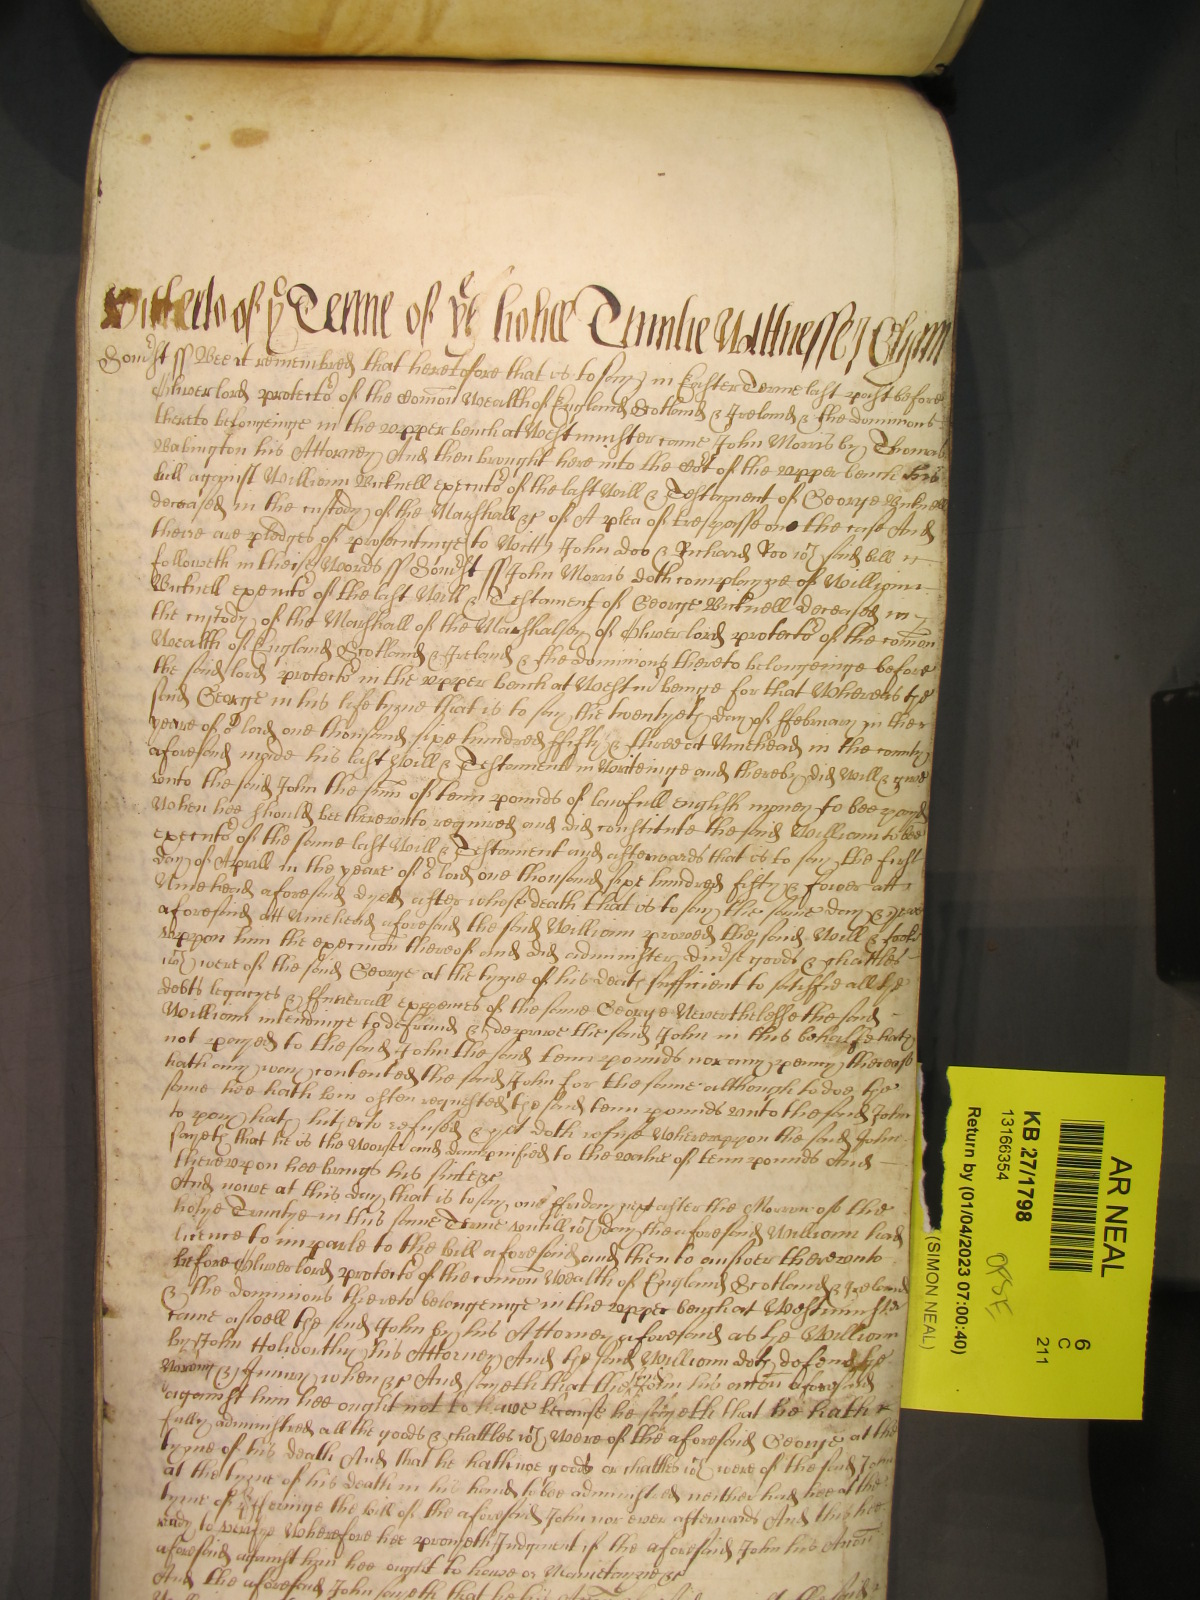 of ye Terme of ye holie Trinitie Wittnesse
Somst ss Bee it remembred that heretofore that is to say in Easter Terme last past before
Oliver lord protector of the Comon Wealth of England Scotland & Ireland & the dominions
thereto belonginge in the upper bench at Westminster came John Morris by Thomas
Babington his Attorney And then brought here into the Cort of the upper bench his
bill against William Bicknell executor of the last Will & Testament of George Bicknell
deceased in the custody of the Marshall &c of A plea of trespasse one the case And
there are pledges of prosecutinge to Witt John doo & Richard Roo wch said bill
followeth in theise Words ss Somst ss John Morris doth complayne of William
Bicknell executor of the last Will & Testament of George Bicknell deceased in
the custody of the Marshall of the Marshalsey of Oliver lord protector of the comon
Wealth of England Scotland & Ireland & the dominions thereto belonginge before
the said lord protector in the upper bench at Westmr beinge for that Whereas the
said George in his life tyme that is to say the twentyeth day of ffebruary in the
yeare of or lord one thousand sixe hundred fifty & three at Minehead in the county
aforesaid made his last Will & Testament in Writeinge and thereby did Will & give
unto the said John the sum of tenn pounds of lawfull english money to bee payd
When hee should bee thereunto required and did constitute the said William to bee
executor of the same last Will & Testament and afterwards that is to say the first
day of Aprill in the yeare of or lord one thousand sixe hundred fifty & fower att
Minehead aforesaid dyed after whose death that is to say the same day & yeare
aforesaid att Minehead aforesaid the said William proved the said Will & tooke
uppon him the execucon thereof and did administer divse goods & chattles
wch were of the said George at the tyme of his death sufficient to satisfie all the
debts legacyes & ffunerall expences of the same George Neverthelesse the said
William intendinge to defraud & deprive the said John in this behalfe hath
not payed to the said John the said tenn pounds nor any penny thereof
hath any way contented the said John for the same although to doe the
same hee hath bin often requested the said tenn pounds unto the said John
to pay hath hitherto refused & yet doth refuse Whereuppon the said John
sayeth that he is the Worse and damnified to the value of tenn pounds And
thereupon hee brings his suite &c
And nowe at this day that is to say one ffriday next after the Morrow of the
holye Trinitye in this same Terme untill wch day the aforesaid William had
licence to imparle to the bill aforesaid and then to answer thereunto
before Oliver lord protector of the comon Wealth of England Scotland & Ireland
& the dominions thereto belonginge in the upper bench at Westminster
came aswell the said John by his Attorney aforesaid as the William
by John Holworthy his Attorney And the said William doth defend the
wrong & Iniury when &c And sayeth that the said John his accon aforesaid
against him hee ought not to have because he sayeth that he hath
fully administred all the goods & chattles wch were of the aforesaid George at the
tyme of his death And that he hath noe goods or chattles wch were of the said
at the tyme of his death in his hands to bee administred neither had hee at the
tyme of the bill of the aforesaid John nor ever afterwards And this hee
ready to verifye Wherefore hee prayeth Judgment if the aforesaid John his Accon
aforesaid against him hee ought to have or Maintayne &c
And the aforesaid John sayeth that he his
AR NEAL
KB 27/1798
13166354
Return by (01/04/2023 07:00:40)
(SIMON NEAL)
6
C
211